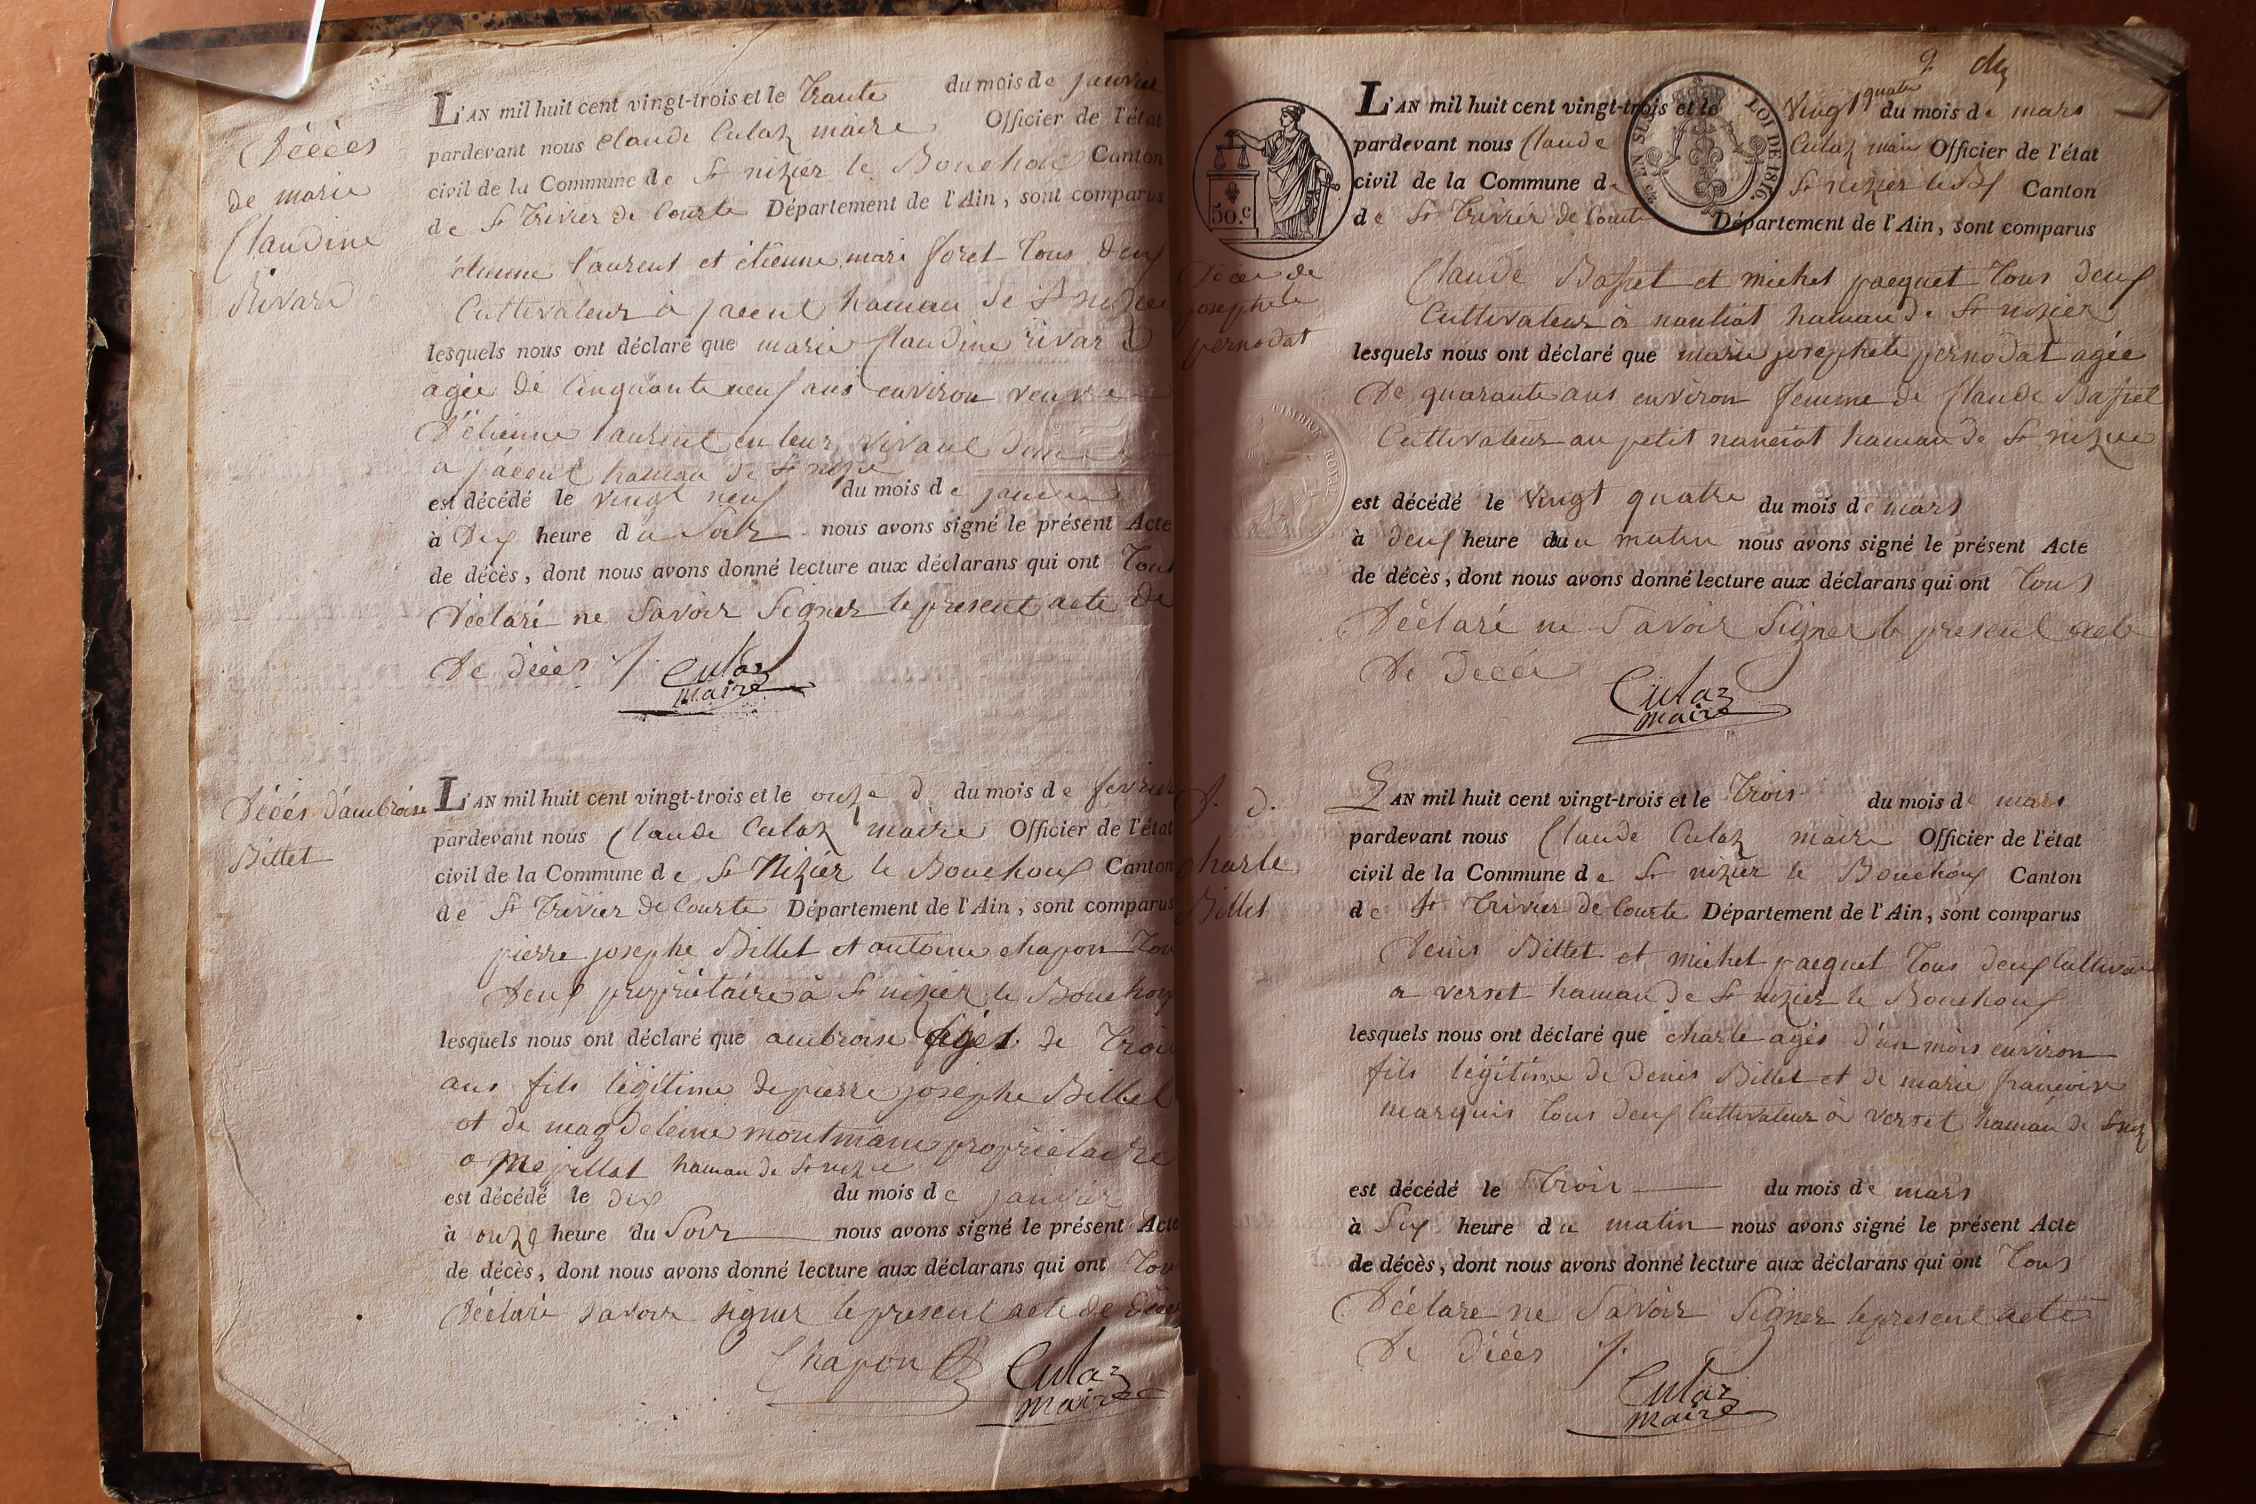 Décès
de marie
Claudine
Rivard
L'AN mil huit cent vingt-trois et le trante du mois de janvier
pardevant nous Claude Culaz maire Officier de l'état
civil de la Commune de St nizier le Bouchoux Canton
de St Trivier de Courte Département de l'Ain, sont comparus
étienne laurent et étienne mari foret tous deux
Cultivateur à hamau de St nizier
lesquels nous ont déclaré que marie Claudine rivard
agée de Cinquante neuf ans environ veuve
d'étienne laurent en leur vivant
a hamau de St nizie
est décédé le vingt neuf du mois de janvier
à dix heure du Soir nous avons signé le présent Acte
de décès, dont nous avons donné lecture aux déclarans qui ont Tous
déclaré ne Savoir Signer le present acte de
de décès
Culaz
maire
Décés d'ambroise
Billet
L'AN mil huit cent vingt-trois et le onze du mois de fevrier
pardevant nous Claude Culaz maire Officier de l'état
civil de la Commune de St Nizier le Bouchoux Canton
de St Trivier de Courte Département de l'Ain, sont comparus
pierre josephe Billet et antoine chapon Tou
deux propriétaire à St nizier le Bouchoux
lesquels nous ont déclaré que ambroise agés de Trois
ans fils légitime de pierre josephe Billet
et de magdeleine montmain propriétaire
a hamau de St nizie
est décédé le dix du mois de janvier
à onze heure du Soir nous avons signé le présent Acte
de décès, dont nous avons donné lecture aux déclarans qui ont Tou
déclaré savoir signer le present acte de décès
Chapon
Culaz
maire
9
50.c
LOI DE 1816.
TIMBRE ROYAL
Décés de
josephete
pernodat
L'AN mil huit cent vingt-trois et le Vingt quatre du mois de mars
pardevant nous Claude Culaz maire Officier de l'état
civil de la Commune de St nizier le Bx Canton
de St Trivier de Courte Département de l'Ain, sont comparus
Claude Bassset et michel pacquet tous deux
Cultivateur à nantiat hamau de St nizier
lesquels nous ont déclaré que marie josephete pernodat agée
De quarante ans environ femme de Claude
Cultivateur au petit hamau de St nizie
est décédé le Vingt quatre du mois de mars
à deux heure du matin nous avons signé le présent Acte
de décès, dont nous avons donné lecture aux déclarans qui ont Tous
Déclaré ne Savoir Signer le present acte
De décés
Culaz
maire
Charle
Billet
L'AN mil huit cent vingt-trois et le Trois du mois de mars
pardevant nous Claude Culaz maire Officier de l'état
civil de la Commune de St nizier le Bouchoux Canton
de St Trivier de Courte Département de l'Ain, sont comparus
Denis Billet et michel pacquet Tous deux Cultivateur
a verset hamau de St nizier le Bouchoux
lesquels nous ont déclaré que charle agés d'un mois environ
fils légitime de denis Billet et de marie francoise
marquis tous deux Cultivateur à verset hamau de St niz
est décédé le Trois du mois de mars
à Six heure du matin nous avons signé le présent Acte
de décès, dont nous avons donné lecture aux déclarans qui ont Tous
Déclare ne Savoir Signer le present acte
De décès
Culaz
maire